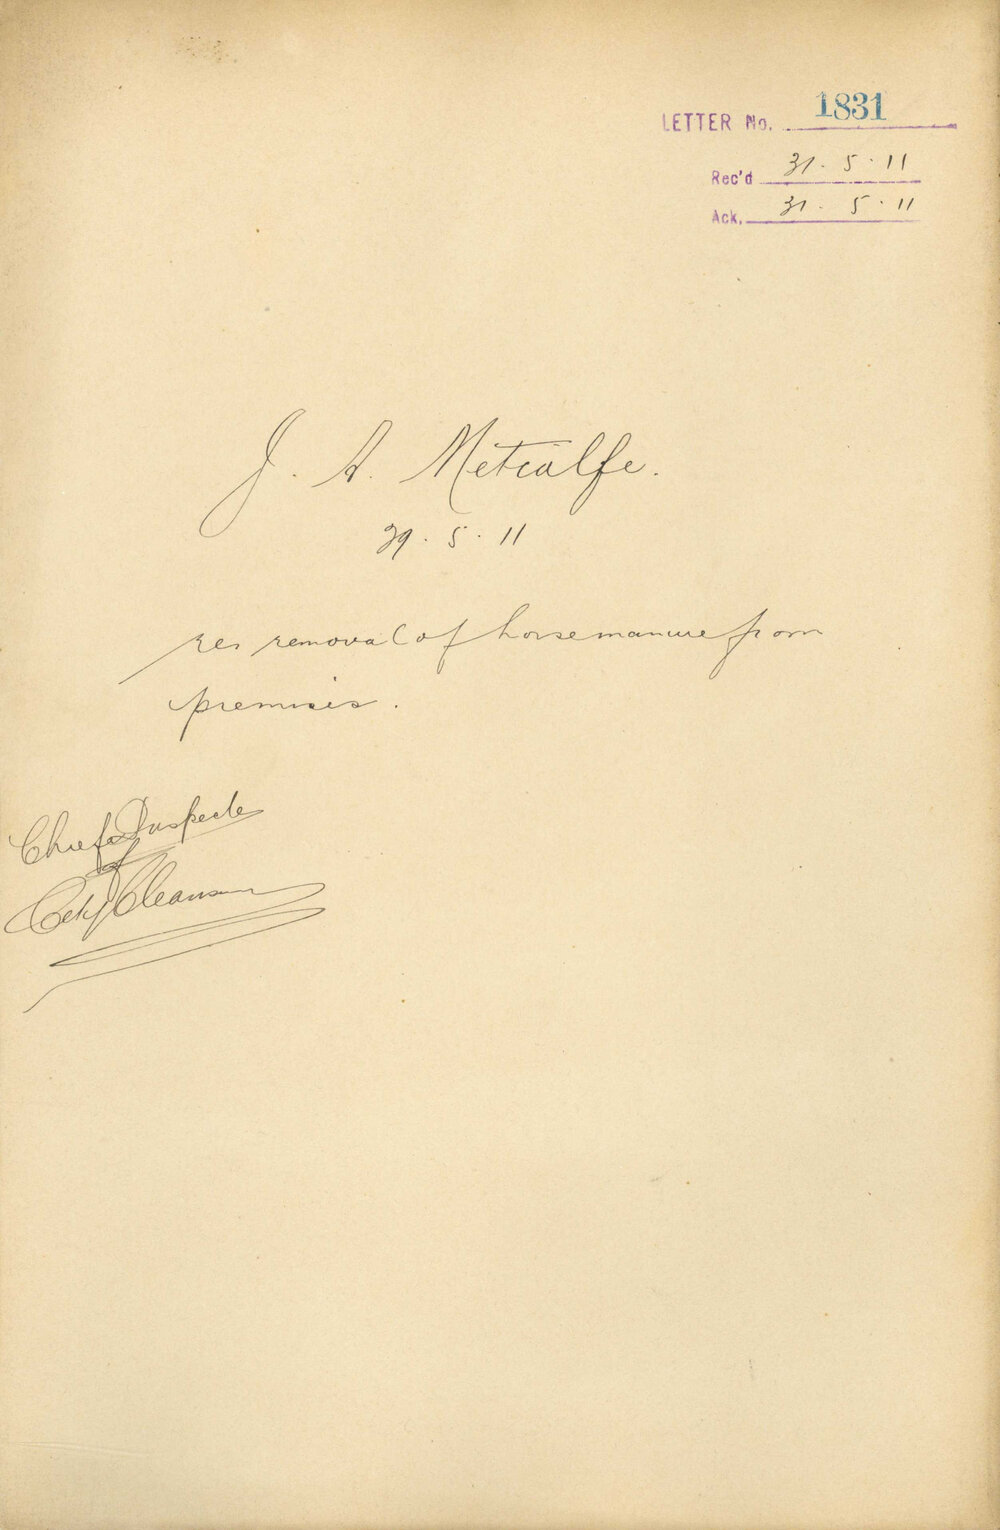 LETTER No. 1831
Rec'd 31.5.11
Ack. 31.5.11
J. A. Metcalfe.
29.5.11
re removal of horse manure from
premises.
Chief Inspector
of
City Cleansing